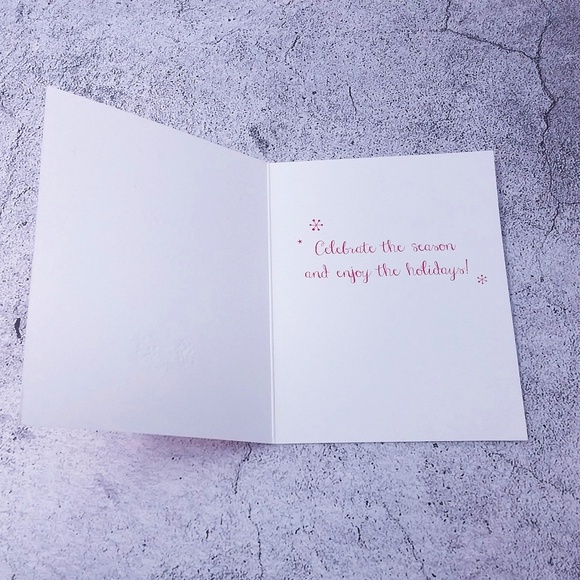 Celebrate the season
and enjoy the holidays!